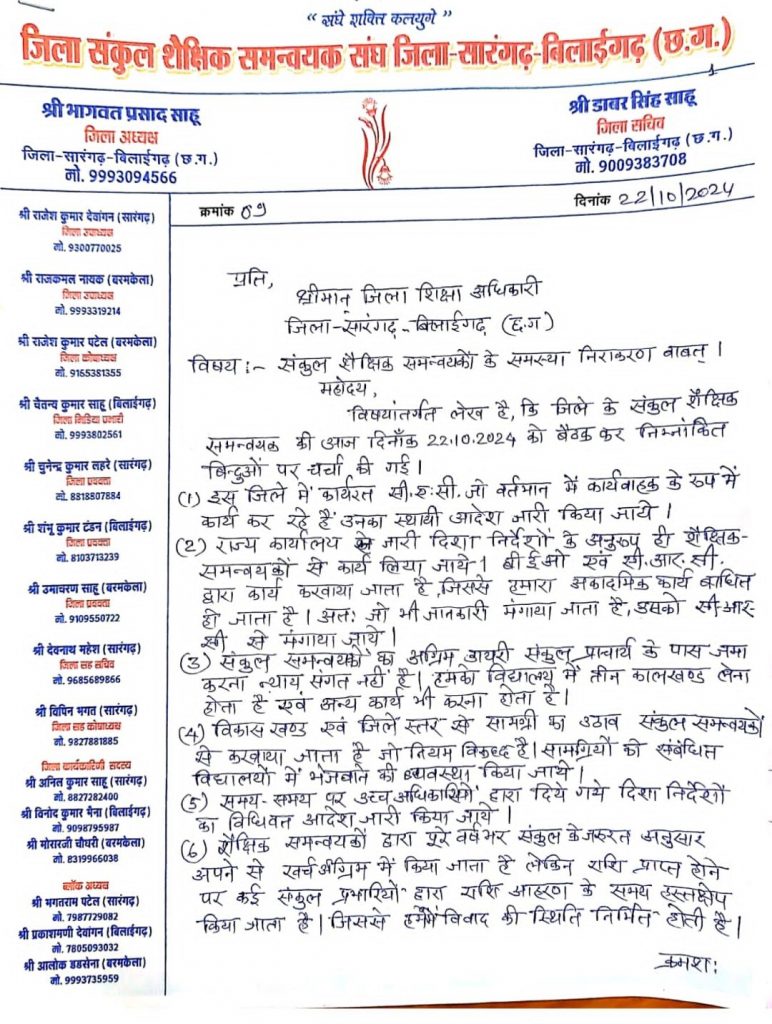 “ संघे शक्ति कलयुगे ”
जिला संकुल शैक्षिक समन्वयक संघ जिला-सारंगढ़-बिलाईगढ़ (छ.ग.)
1
श्री भागवत प्रसाद साहू
जिला अध्यक्ष
जिला-सारंगढ़-बिलाईगढ़ (छ.ग.)
मो. 9993094566
श्री डाबर सिंह साहू
जिला सचिव
जिला-सारंगढ़-बिलाईगढ़ (छ.ग.)
मो. 9009383708
श्री राजेश कुमार देवांगन (सारंगढ़)
जिला उपाध्यक्ष
मो. 9300770025
श्री राजकमल नायक (बरमकेला)
जिला उपाध्यक्ष
मो. 9993319214
श्री राजेश कुमार पटेल (बरमकेला)
जिला कोषाध्यक्ष
मो. 9165381355
श्री चैतन्य कुमार साहू (बिलाईगढ़)
जिला मिडिया प्रभारी
मो. 9993802561
श्री चुनेन्द्र कुमार लहरे (सारंगढ़)
जिला प्रवक्ता
मो. 8818807884
श्री शंभू कुमार टंडन (बिलाईगढ़)
जिला प्रवक्ता
मो. 8103713239
श्री उमाचरण साहू (बरमकेला)
जिला प्रवक्ता
मो. 9109550722
श्री देवनाथ महेश (सारंगढ़)
जिला सह सचिव
मो. 9685689866
श्री विपिन भगत (सारंगढ़)
जिला सह कोषाध्यक्ष
मो. 9827881885
जिला कार्यकारिणी सदस्य
श्री अनिल कुमार साहू (सारंगढ़)
मो. 8827282400
श्री विनोद कुमार मैना (बिलाईगढ़)
मो. 9098795987
श्री मोरारजी चौधरी (बरमकेला)
मो. 8319966038
ब्लॉक अध्यक्ष
श्री भगतराम पटेल (सारंगढ़)
मो. 7987729082
श्री प्रकाशमणी देवांगन (बिलाईगढ़)
मो. 7805093032
श्री आलोक डडसेना (बरमकेला)
मो. 9993735959
क्रमांक 09
दिनांक 22/10/2024
प्रति,
श्रीमान् जिला शिक्षा अधिकारी
जिला-सारंगढ़-बिलाईगढ़ (छ.ग)
विषय :- संकुल शैक्षिक समन्वयकों के समस्या निराकरण बाबत् ।
महोदय,
विषयांतर्गत लेख है, कि जिले के संकुल शैक्षिक
समन्वयक की आज दिनाँक 22.10.2024 को बैठक कर निम्नांकित
बिन्दुओं पर चर्चा की गई ।
(1) इस जिले में कार्यरत सी.ए.सी. जो वर्तमान में कार्यवाहक के रूप में
कार्य कर रहे हैं उनका स्थायी आदेश जारी किया जाये ।
(2) राज्य कार्यालय से जारी दिशा निर्देशों के अनुरूप ही शैक्षिक-
समन्वयकों से कार्य लिया जाये । बी.ई.ओ एवं बी.आर.सी.
द्वारा कार्य करवाया जाता है, जिससे हमारा अकादमिक कार्य बाधित
हो जाता है । अतः जो भी जानकारी मंगाया जाता है, उसको बी.आर
सी से मंगाया जाये ।
(3) संकुल समन्वयकों का अग्रिम डायरी संकुल प्राचार्य के पास जमा
करना न्याय संगत नहीं है । हमको विद्यालय में तीन कालखण्ड लेना
होता है एवं अन्य कार्य भी करना होता है ।
(4) विकास खण्ड एवं जिले स्तर से सामग्री का उठाव संकुल समन्वयकों
से करवाया जाता है जो नियम विरूध्द है । सामग्रियों को संबंधित
विद्यालयों में भेजवाने की व्यवस्था किया जाये ।
(5) समय-समय पर उच्च अधिकारियों द्वारा दिये गये दिशा निर्देशों
का विधिवत आदेश जारी किया जाये ।
(6) शैक्षिक समन्वयकों द्वारा पूरे वर्षभर संकुल के जरूरत अनुसार
अपने से खर्च अग्रिम में किया जाता है लेकिन राशि प्राप्त होने
पर कई संकुल प्रभारियों द्वारा राशि आहरण के समय हस्तक्षेप
किया जाता है । जिससे हममें विवाद की स्थिति निर्मित होती है ।
क्रमशः